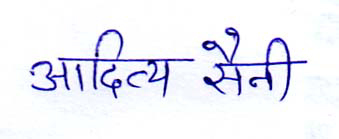 आदित्य सैनी